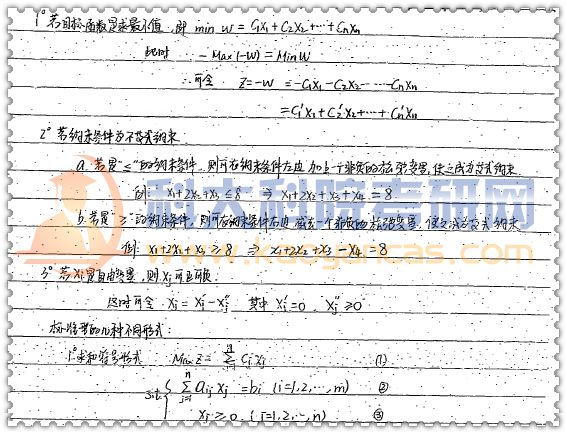 1° 若目标函数是求最小值,即 min w = C₁x₁ + C₂x₂ + … + Cₙxₙ
此时 - Max(-W) = Min W
∴可令 Z = -W = -C₁x₁ - C₂x₂ - … - Cₙxₙ
= C₁'x₁ + C₂'x₂ + … + Cₙ'xₙ
2° 若约束条件为不等式约束
a. 若是"≤"的约束条件,则可在约束条件左边加上一个非负的松弛变量,使之成为等式约束
例: x₁+2x₂+x₃ ≤ 8 ⇒ x₁+2x₂+x₃+x₄ = 8
b. 若是"≥"的约束条件,则可在约束条件左边减去一个非负的松弛变量,使之成为等式约束
例: x₁+2x₂+x₃ ≥ 8 ⇒ x₁+2x₂+x₃-x₄ = 8
科大科院考研网
www.kaoyancas.com
3° 若xⱼ是自由变量,则xⱼ可正可负
这时可令 xⱼ = xⱼ' - xⱼ'' 其中 xⱼ' ≥ 0, xⱼ'' ≥ 0
标准型的几种不同形式:
1° 求和符号形式 Max Z = Σ Cⱼxⱼ (1)
s.t. { Σ aᵢⱼ xⱼ = bᵢ (i=1,2,…,m) ②
xⱼ ≥ 0 (j=1,2,…,n) ③